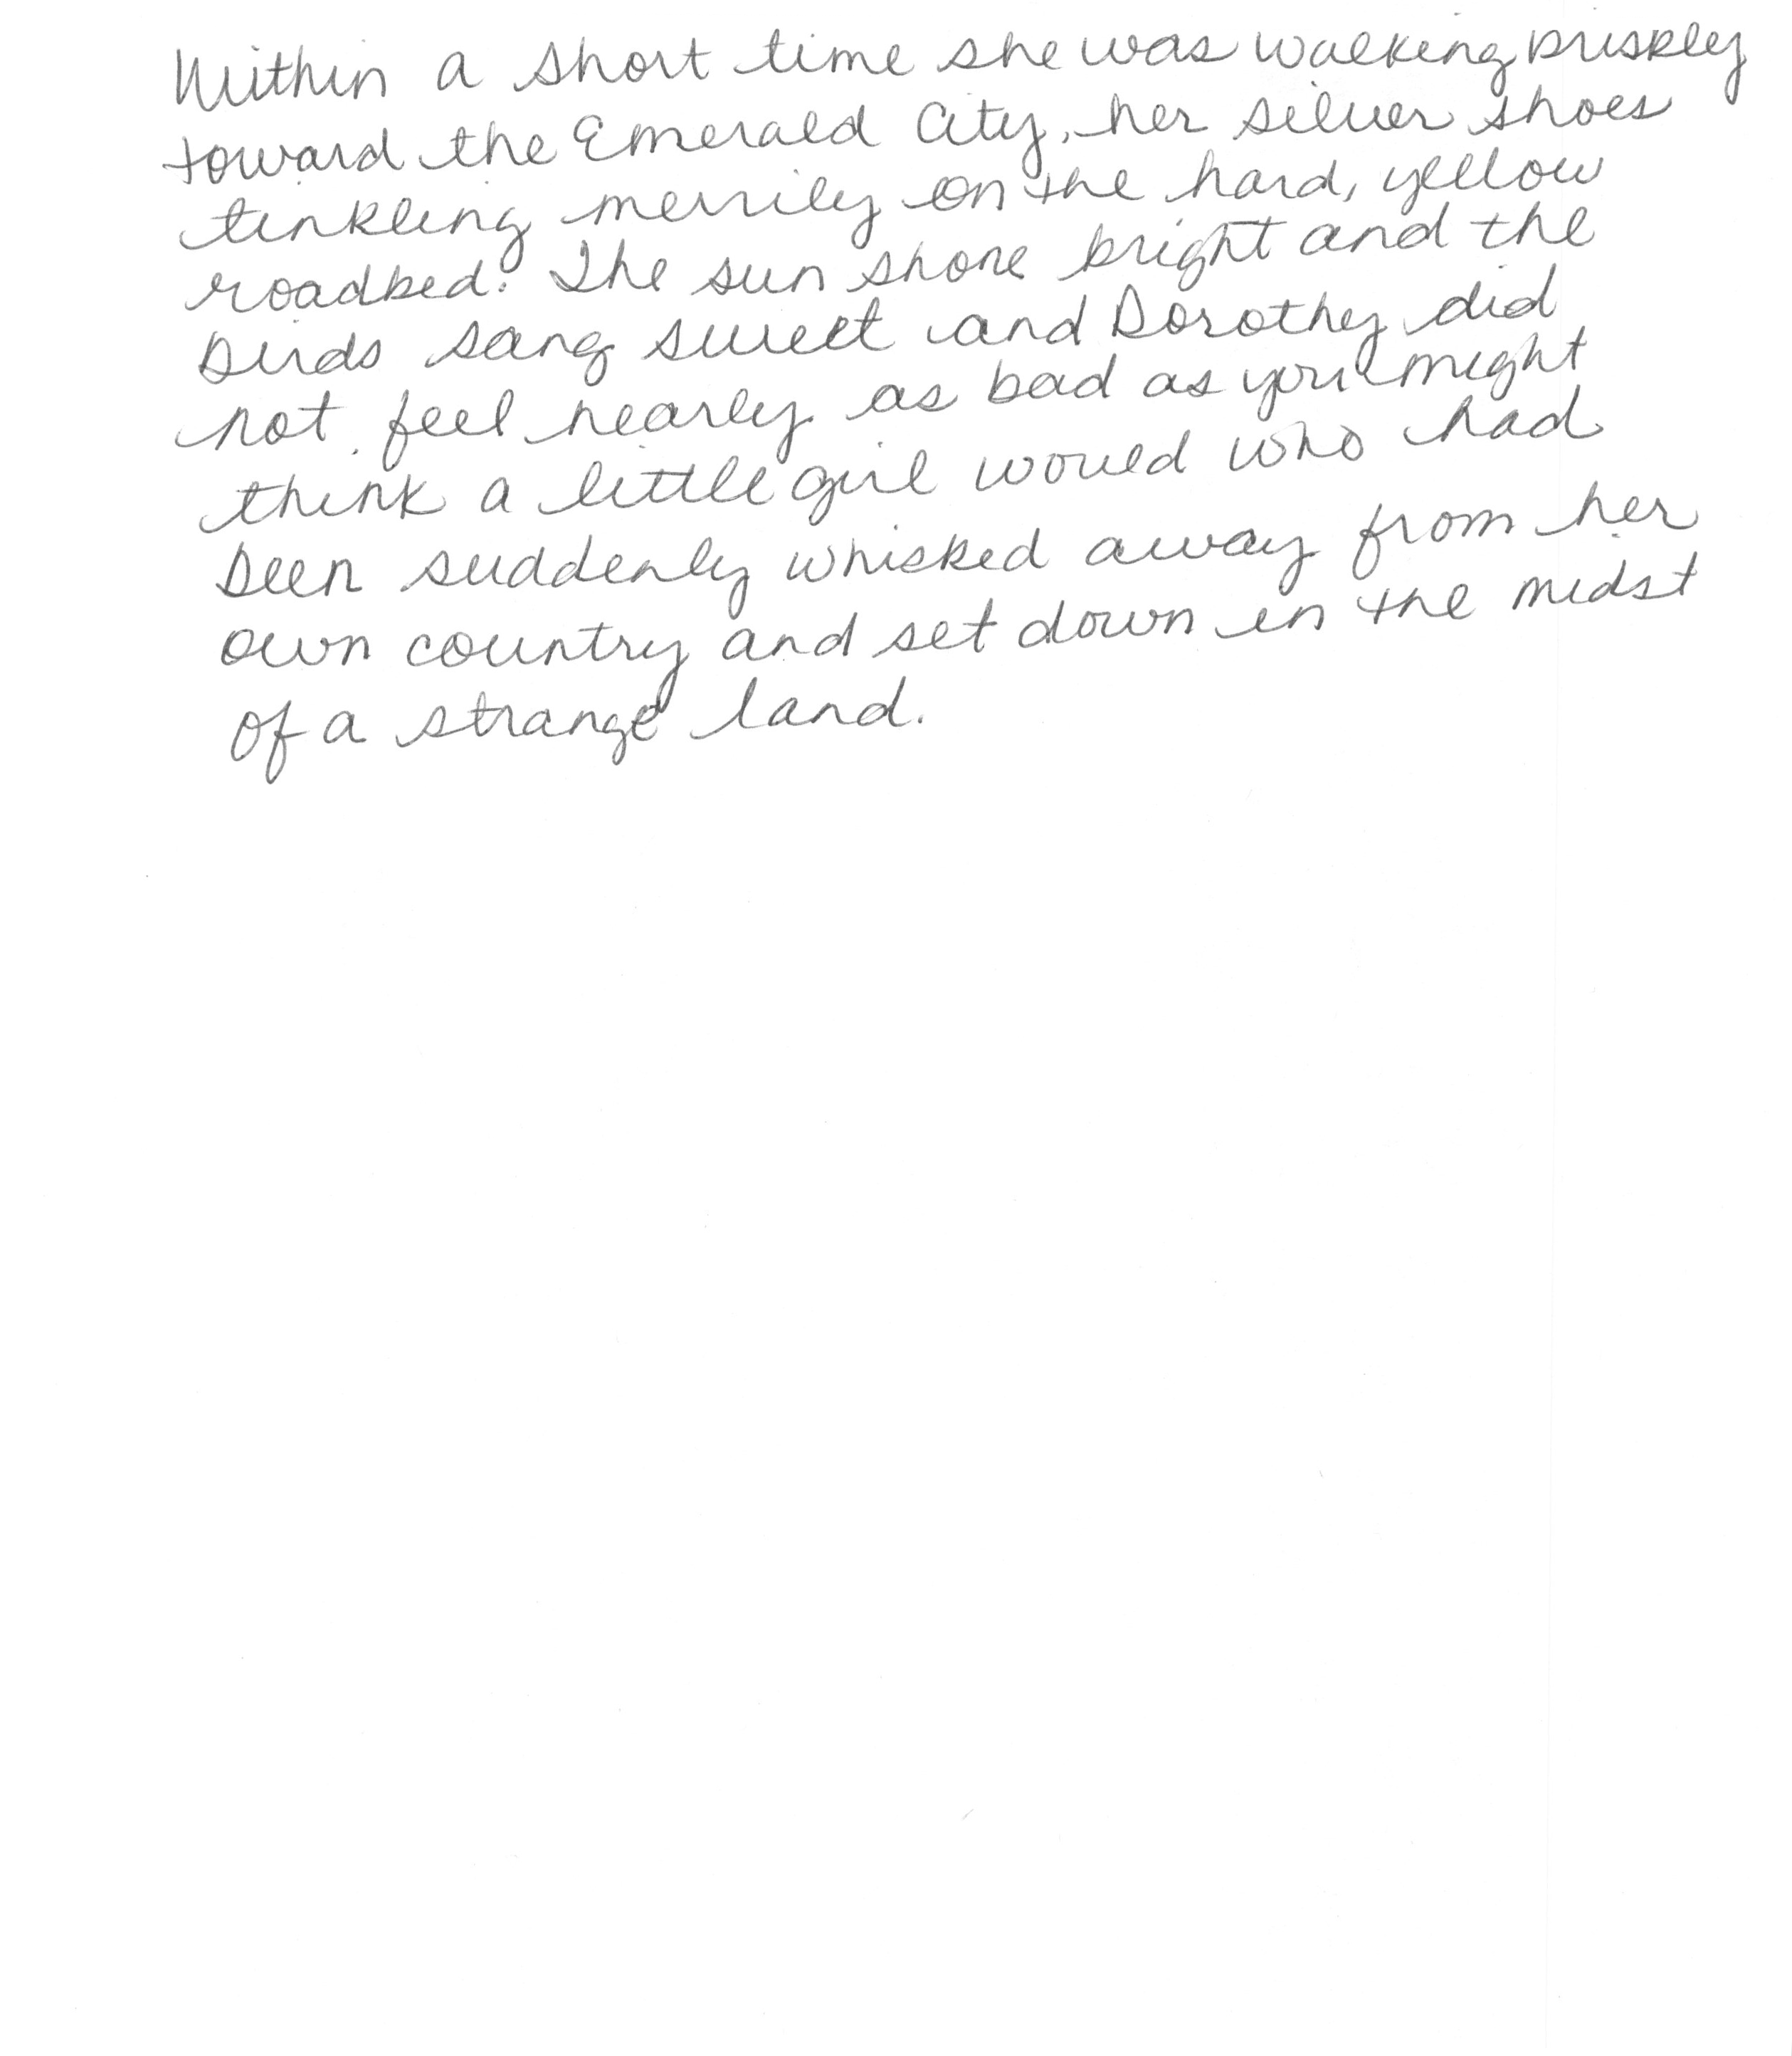 Within a short time she was walking briskly
toward the Emerald City, her silver shoes
tinkling merrily on the hard, yellow
roadbed. The sun shone bright and the
birds sang sweet and Dorothy did
not feel nearly as bad as you might
think a little girl would who had
been suddenly whisked away from her
own country and set down in the midst
of a strange land.